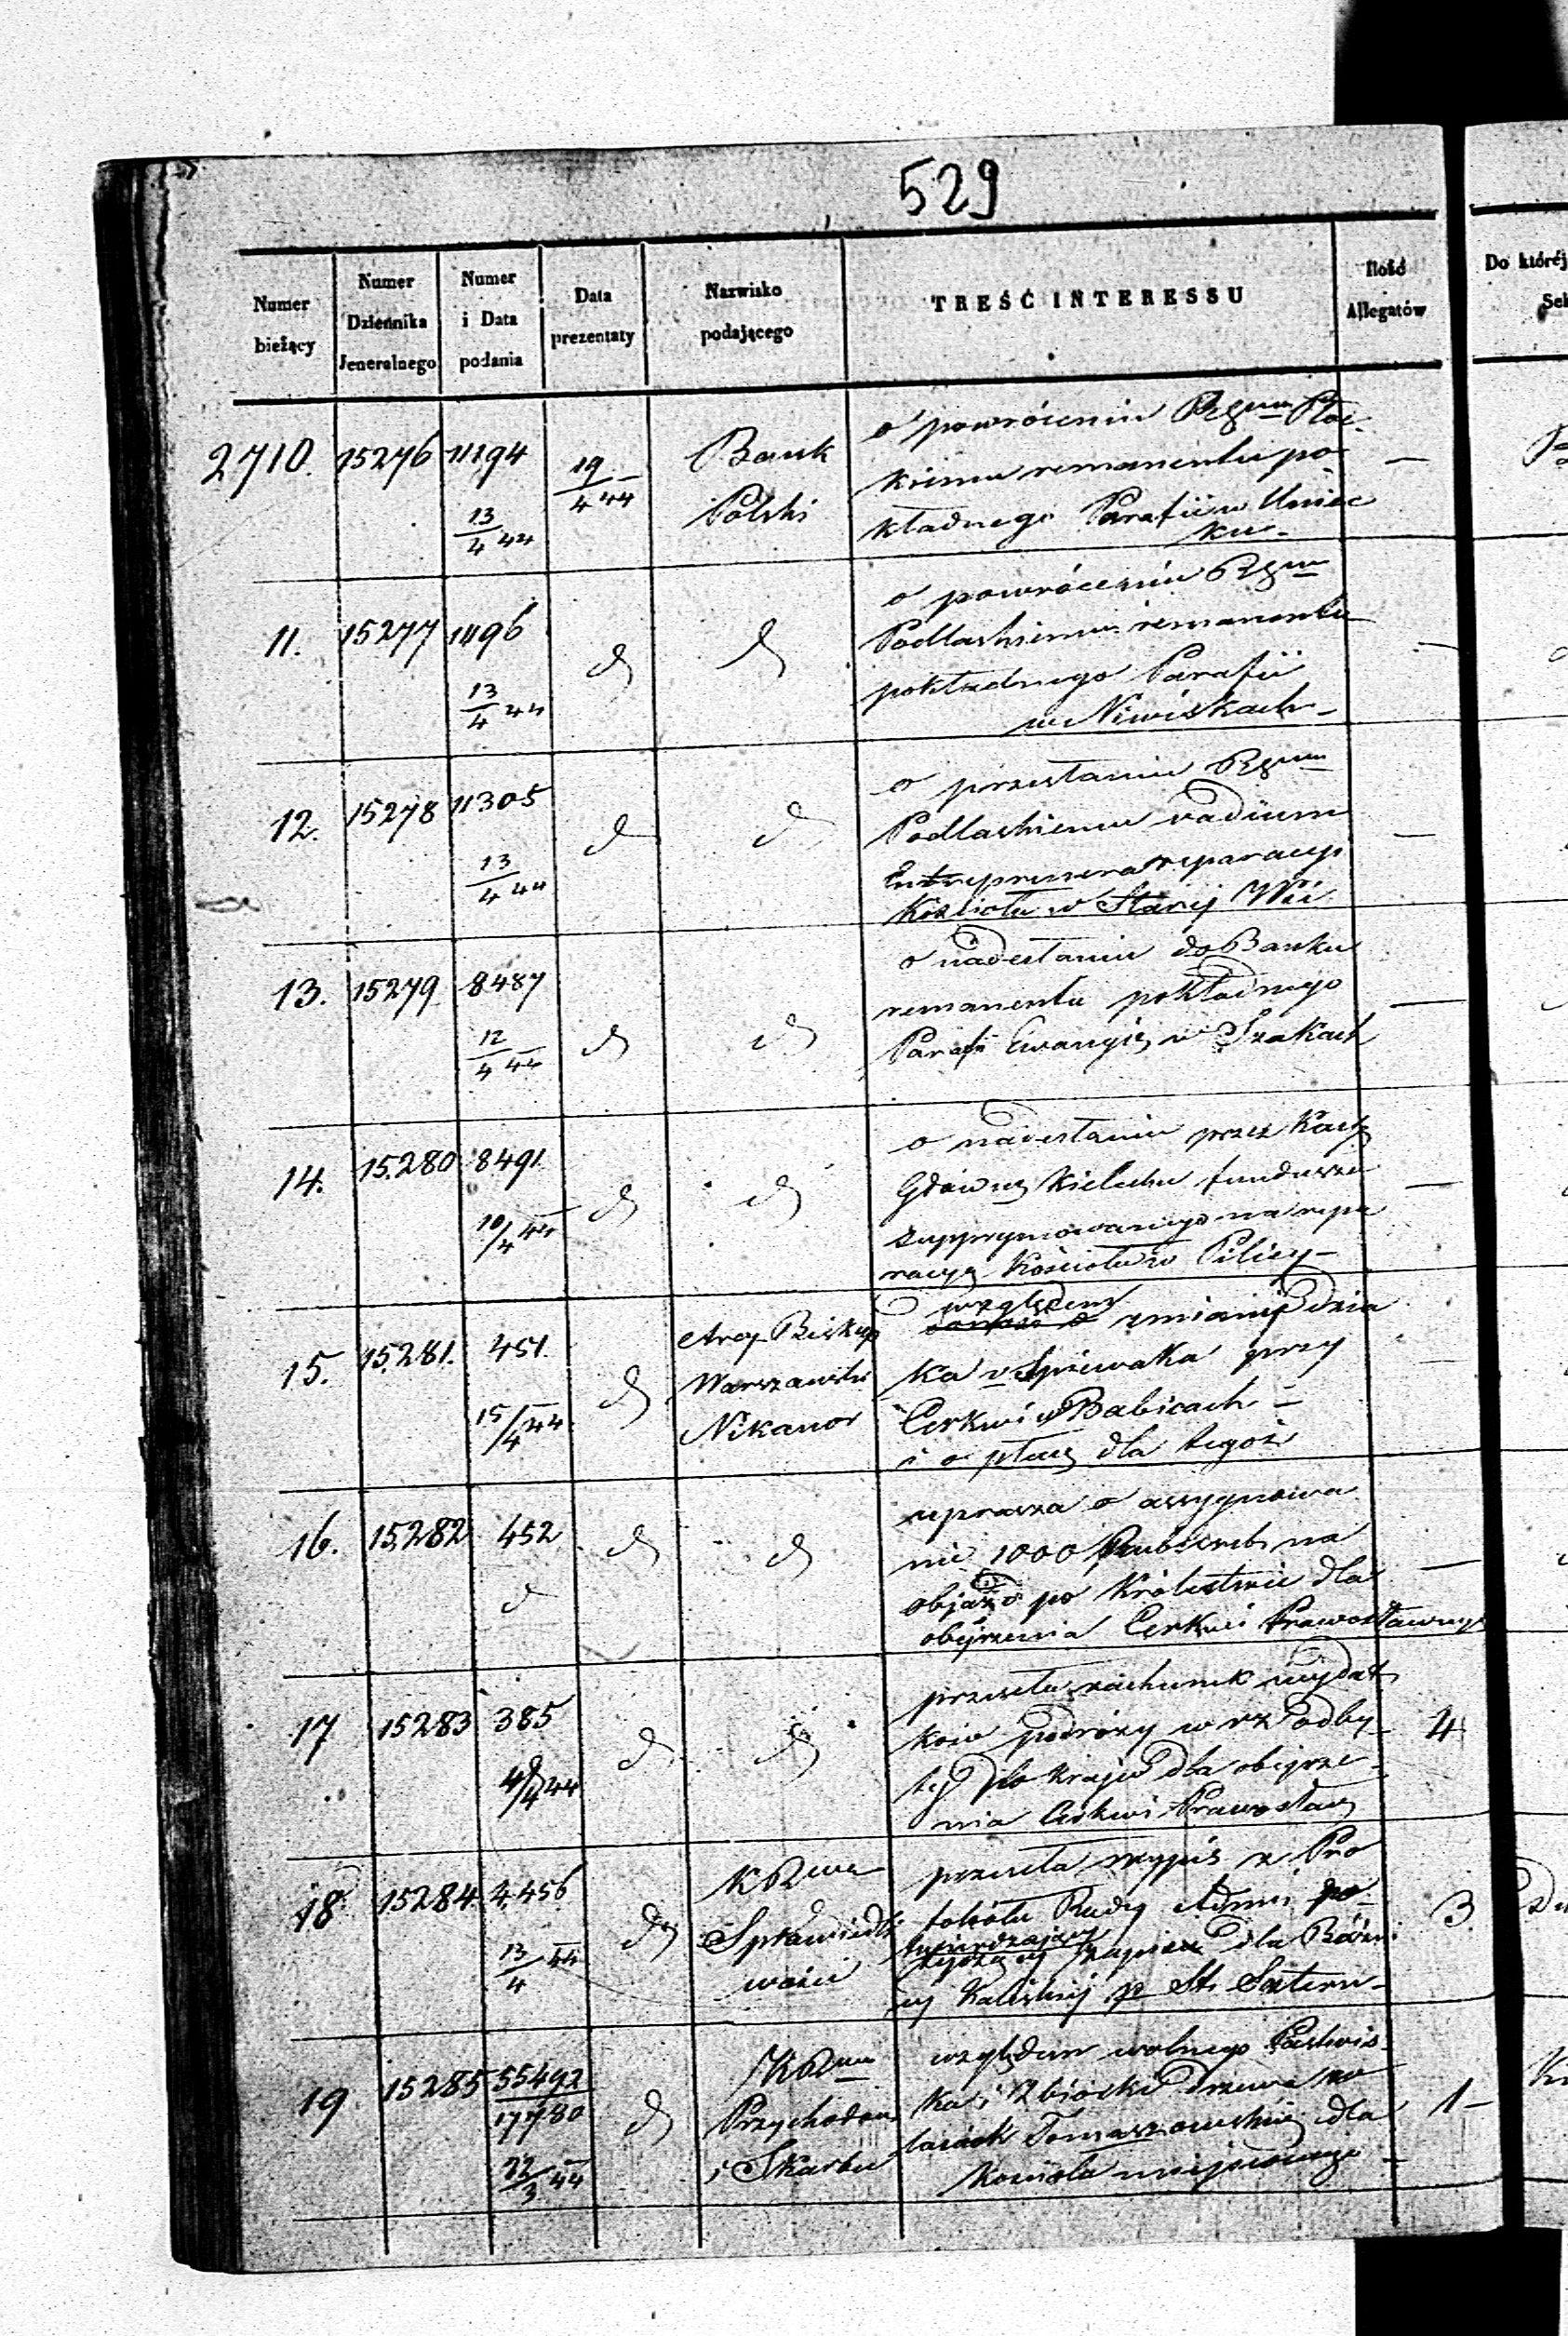 529
Numer bieżący
Numer Dziennika Jeneralnego
Numer i Data podania
Data prezentaty
Nazwisko podającego
TREŚĆ INTERESSU
Ilość Allegatów
Do której
2710. 15276 11194 13/4 44 19/4 44
Bank
Polski
o powróceniu Rzgmu Płoc
kiemu remanentu po
kładnego Parafii w Uniec
ku -
11. 15277 11196 13/4 44 d d
o powróceniu Rzgmu
Podlaskiemu remanentu
pokładnego Parafii
w Niwiskach -
12. 15278 11305 13/4 44 d d
o przesłaniu Rzgmu
Podlaskiemu vadium
Entreprenera reparacyi
Kościoła w Starej Wsi
13. 15279 8487 12/4 44 d d
o nadesłaniu do Banku
remanentu pokładnego
Parafii Ewangie, w Szakach
14. 15280 8491 10/4 44 d d
o nadesłaniu przez Kasę
Główną Kielecką funduszu
supprymowanego na repa
racyą Kościoła w Pilicy -
15. 15281. 451. 15/4 44 d
Arcy Biskup
Warszawski
Nikanor
względem
zmiany dzia
ka v Spiewaka przy
Cerkwi w Babicach -
i o płacę dla tegoż
16. 15282 452 d d d
uprasza o assygnowa
nie 1000 Rub. sreb. na
objazd po Królestwie dla
obejrzenia Cerkwi Prawosławnych
17 15283 385 4/4 44 d d
przesyła rachunek wydat
ków podróży w rz. odby
tej po Kraju dla obejrze
nia Cerkwi Prawosław,
4
18. 15284. 4.456 13/4 44 d
K R
Sprawiedli
wości
przesyła wypis z Pro
tokółu Rady Admi, po
twierdzający
zapisu dla Bóżni
cy Kaliskiej p St.
3.
19 15285 55492/17780 22/3 44 d
K R
Przychodów
i Skarbu
względem wolnego Pastwis
ka i Zbiórki drzewa w
lasach Tomaszowskich dla
Kościoła miejscowego -
1 -